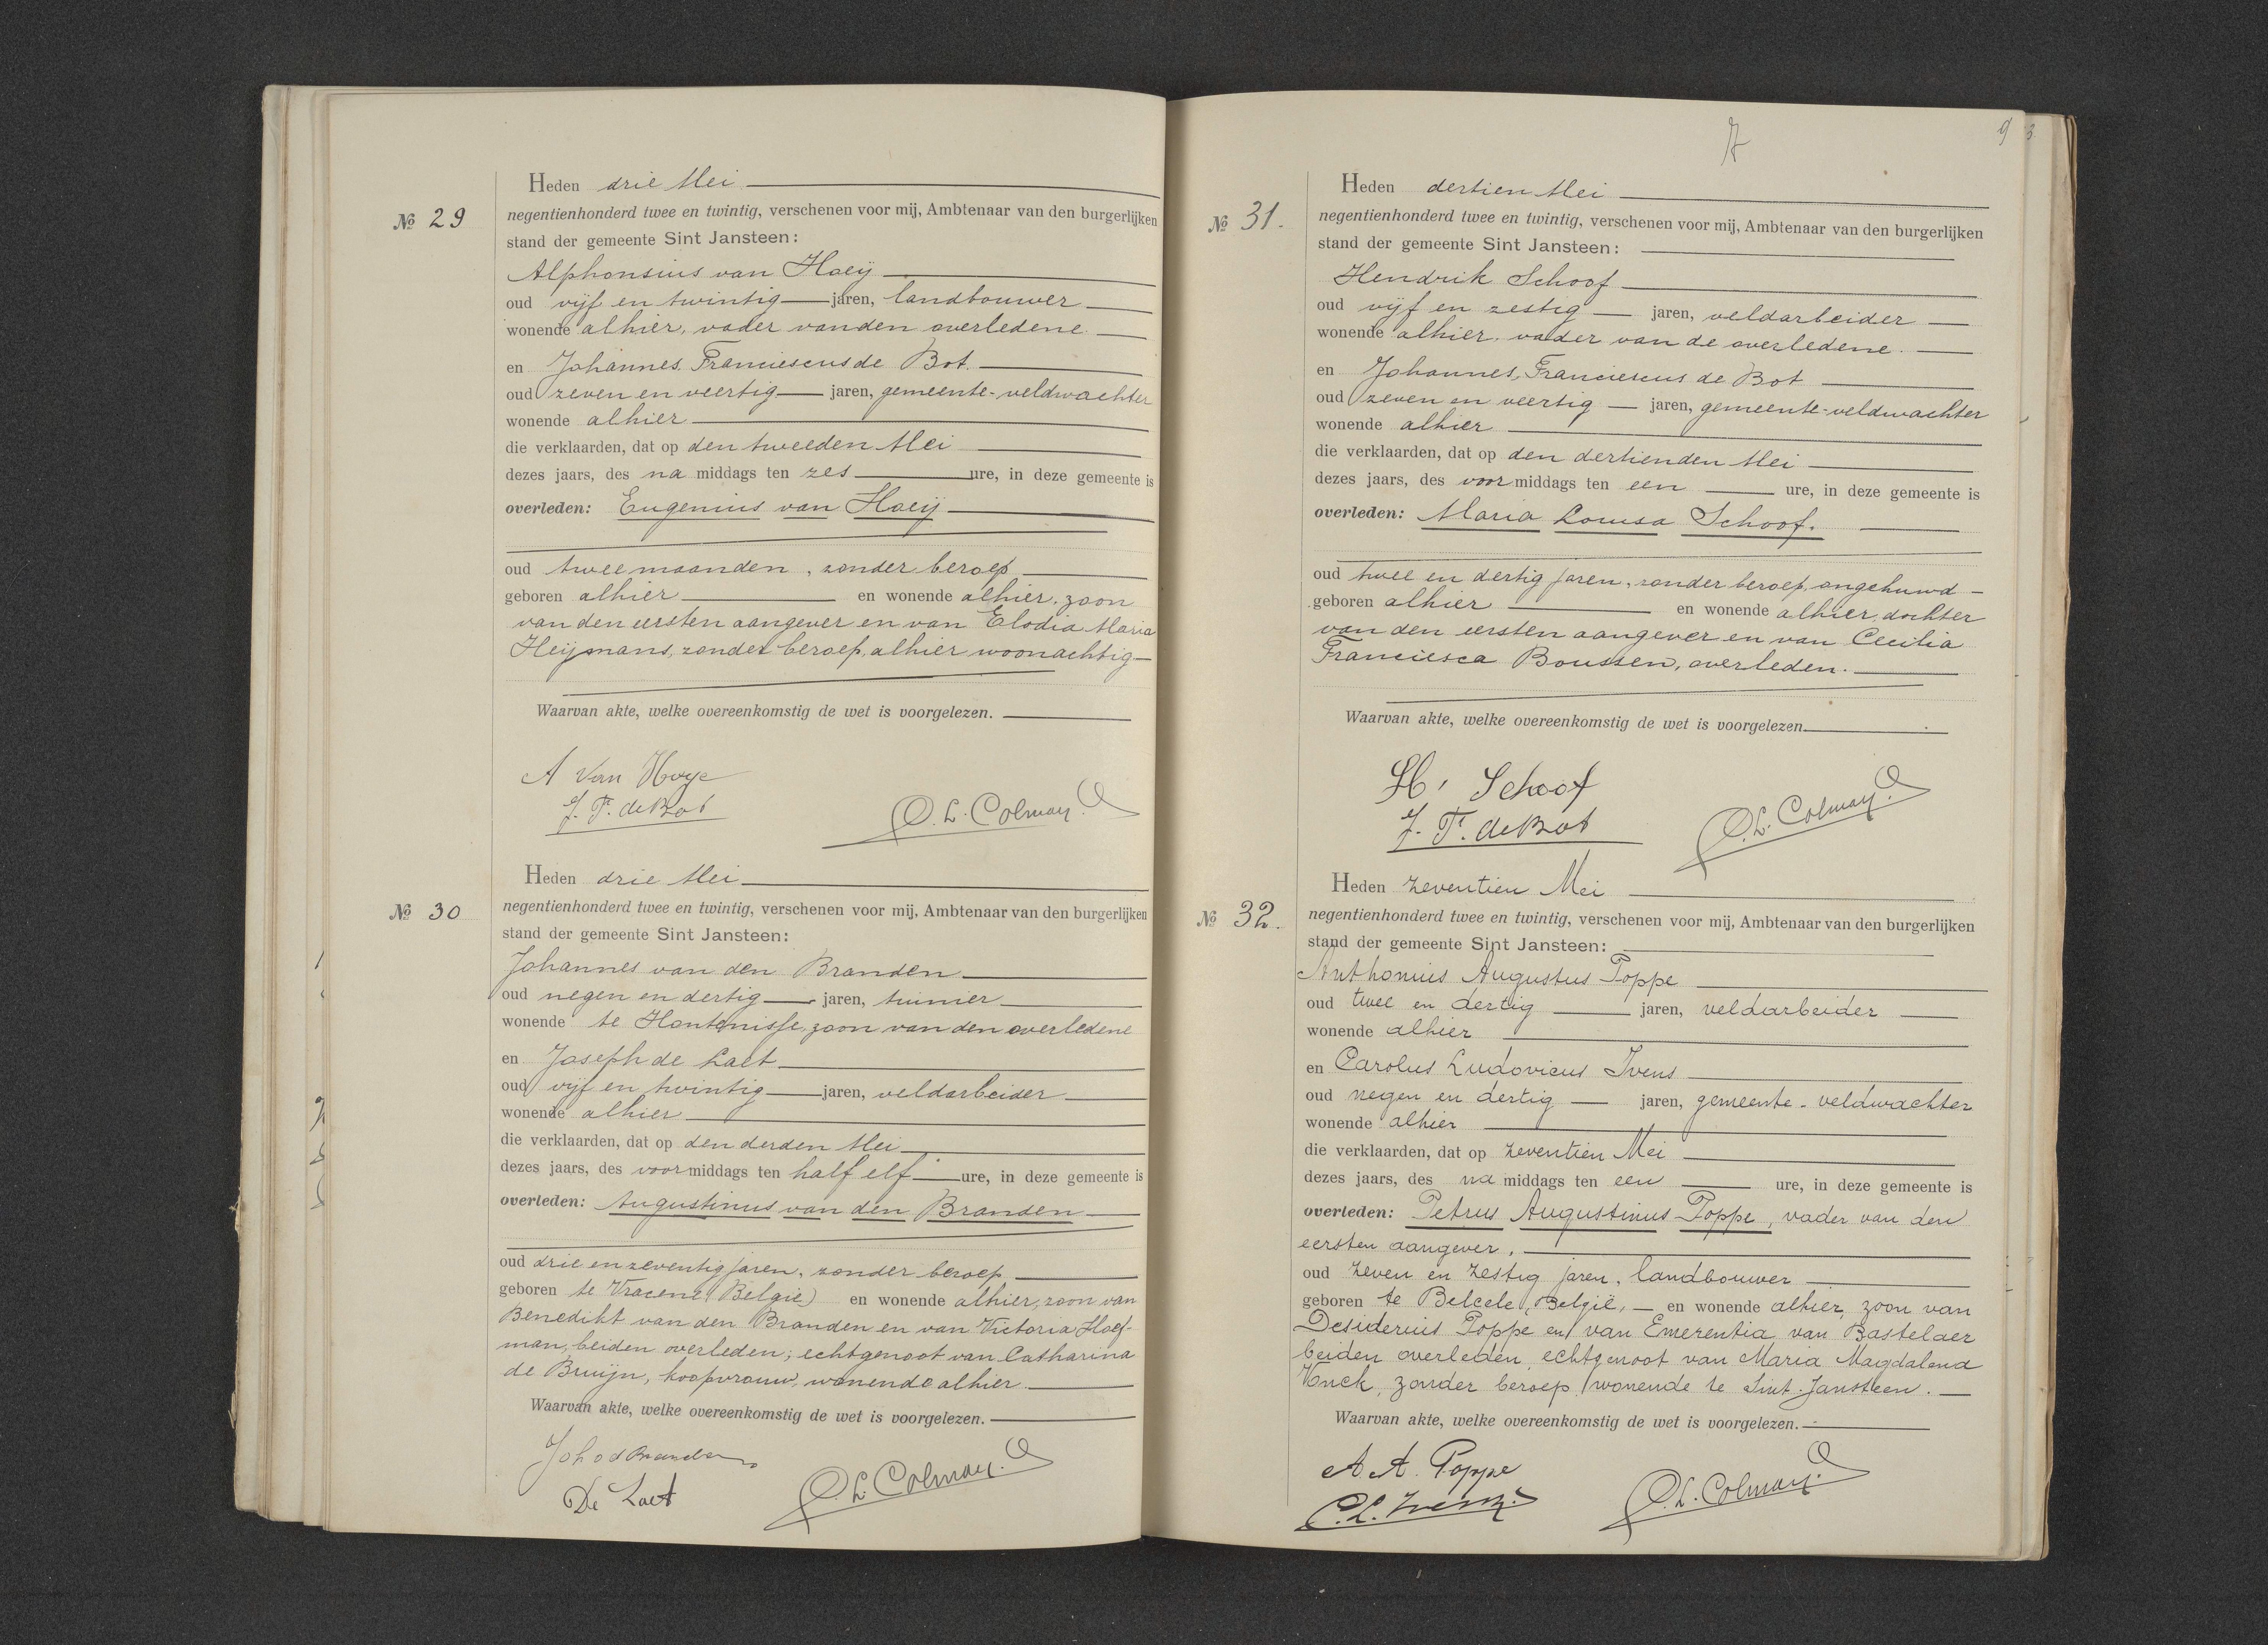 Heden drie Mei
No 29
negentienhonderd twee en twintig, verschenen voor mij, Ambtenaar van den burgerlijken
stand der gemeente Sint Jansteen:
Alphonsius van Hoeij
oud vijf en twintig jaren, landbouwer
wonende alhier, vader vanden overledene
en Johannes Franciescus de Bot.
oud zeven en veertig jaren, gemeente-veldwachter
wonende alhier
die verklaarden, dat op den tweeden Mei
dezes jaars, des na middags ten zes ure, in deze gemeente is
overleden: Eugenius van Hoeij
oud twee maanden, zonder beroep
geboren alhier en wonende alhier, zoon
van den eersten aangever en van Elodia Maria
Heijmans, zonder beroep, alhier woonachtig
Waarvan akte, welke overeenkomstig de wet is voorgelezen.
A Van Hoye
J. F. de Bot
O. L. Colman
Heden drie Mei
No 30
negentienhonderd twee en twintig, verschenen voor mij, Ambtenaar van den burgerlijken
stand der gemeente Sint Jansteen:
Johannes van den Branden
oud negen en dertig jaren, tuinier
wonende te Hontenisse, zoon van den overledene
en Joseph de Laet
oud vijf en twintig jaren, veldarbeider
wonende alhier
die verklaarden, dat op den derden Mei
dezes jaars, des voormiddags ten half elf ure, in deze gemeente is
overleden: Augustinus van den Branden
oud drie en zeventig jaren, zonder beroep
geboren te Vracene (België) en wonende alhier, zoon van
Benedikt van den Branden en van Victoria Hoef-
man, beiden overleden; echtgenoot van Catharina
de Bruijn, koopvrouw, wonende alhier
Waarvan akte, welke overeenkomstig de wet is voorgelezen.
De Laet
O. L. Colman
7
9
3
Heden dertien Mei
No 31.
negentienhonderd twee en twintig, verschenen voor mij, Ambtenaar van den burgerlijken
stand der gemeente Sint Jansteen:
Hendrik Schoof
oud vijf en zestig jaren, veldarbeider
wonende alhier, vader van de overledene.
en Johannes Franciescus de Bot
oud zeven en veertig jaren, gemeente-veldwachter
wonende alhier
die verklaarden, dat op den dertienden Mei
dezes jaars, des voor middags ten een ure, in deze gemeente is
overleden: Maria Louisa Schoof.
oud twee en dertig jaren, zonder beroep, ongehuwd
geboren alhier en wonende alhier, dochter
van den eersten aangever en van Cecilia
Franciesca Boussen, overleden.
Waarvan akte, welke overeenkomstig de wet is voorgelezen
H. Schoof
J. F. de Bot
O. L. Colman
Heden zeventien Mei
No 32.
negentienhonderd twee en twintig, verschenen voor mij, Ambtenaar van den burgerlijken
stand der gemeente Sint Jansteen:
Anthonius Augustus Poppe
oud twee en dertig jaren, veldarbeider
wonende alhier
en Carolus Ludovicus Ivens
oud negen en dertig jaren, gemeente-veldwachter
wonende alhier
die verklaarden, dat op zeventien Mei
dezes jaars, des na middags ten een ure, in deze gemeente is
overleden: Petrus Augustinus Poppe, vader van den
eersten aangever,
oud zeven en zestig jaren, landbouwer
geboren te Belcele, België, en wonende alhier, zoon van
Desiderius Poppe en van Emerentia van Bastelaer
beiden overleden, echtgenoot van Maria Magdalena
Vonck, zonder beroep, wonende te Sint-Jansteen.
Waarvan akte, welke overeenkomstig de wet is voorgelezen.
A. A. Poppe
C. L. Ivens
O. L. Colman